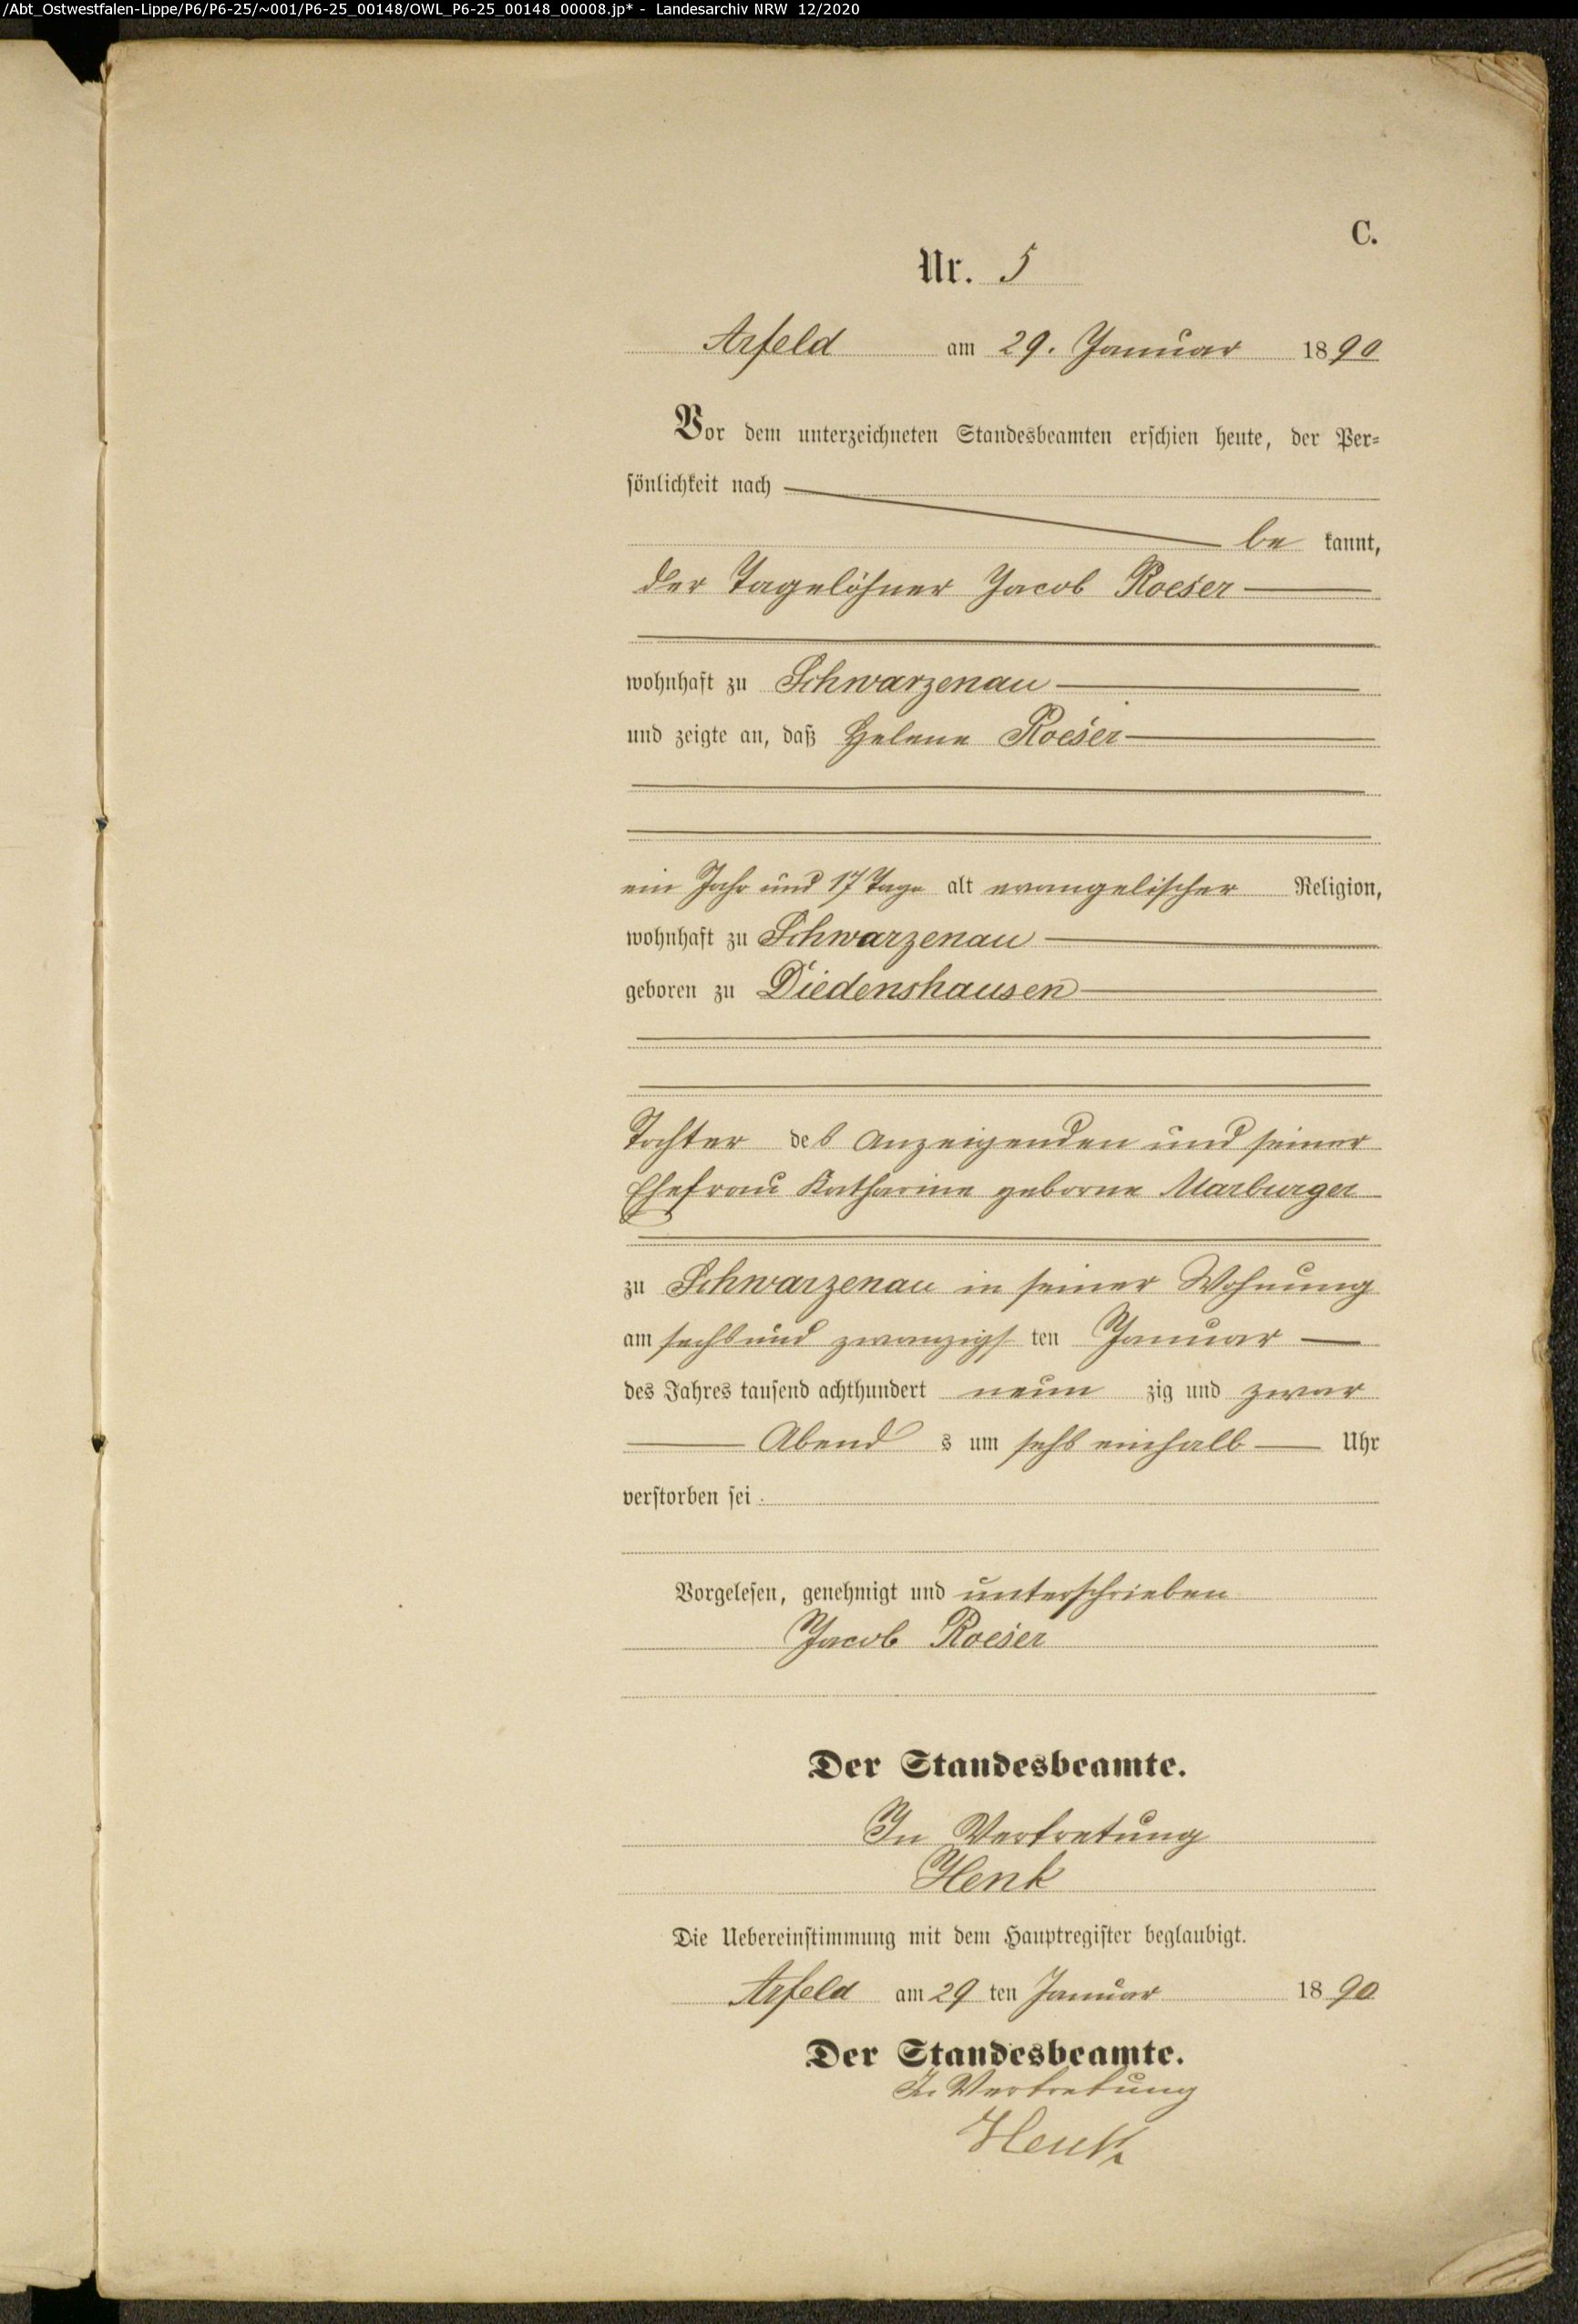 /Abt_Ostwestfalen-Lippe/P6/P6-25/~001/P6-25_00148/OWL_P6-25_00148_00008.jp* - Landesarchiv NRW 12/2020
C.
Nr. 5
Arfeld am 29. Januar 1890
Vor dem unterzeichneten Standesbeamten erschien heute, der Per-
sönlichkeit nach
be kannt,
der Tagelöhner Jacob Roeser
wohnhaft zu Schwarzenau
und zeigte an, daß Helene Roeser
ein Jahr und 17 Tage alt evangelischer Religion,
wohnhaft zu Schwarzenau
geboren zu Diedenshausen
Tochter des Anzeigenden und seiner
Ehefrau Katharine geborne Marburger
zu Schwarzenau in seiner Wohnung
am sechsund zwanzigs ten Januar
des Jahres tausend achthundert neun zig und zwar
Abend s um sechs einhalb Uhr
verstorben sei.
Vorgelesen, genehmigt und unterschrieben
Jacob Roeser
Der Standesbeamte.
In Vertretung
Henk
Die Uebereinstimmung mit dem Hauptregister beglaubigt.
Arfeld am 29 ten Januar 1890
Der Standesbeamte.
In Vertretung
Henk